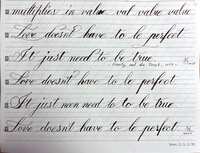 multiplies in value val value value
Love doesn't have to be perfect
It just need to be true.
Love doesn't have to be perfect
It just need need to be true
Love doesn't have to be perfect.